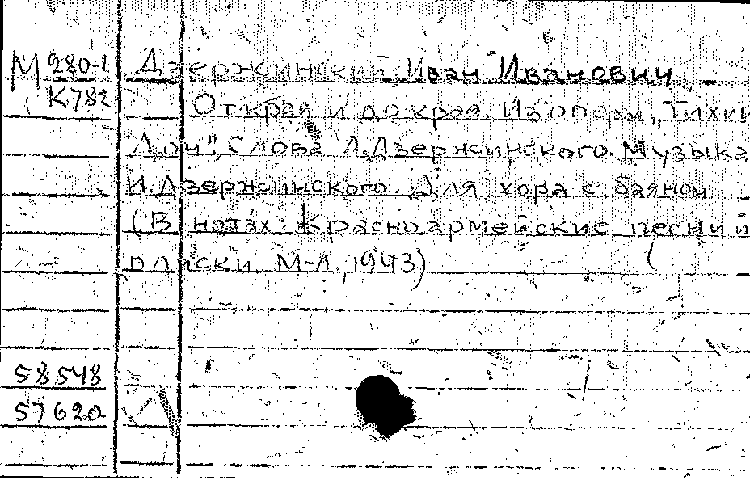 М 280-1 Дзержинский Иван Иванович
К782 От края и до края. Из оперы „Тихий
Дон". Слова Л. Дзержинского. Музыка
И. Дзержинского. Для хора с баяном
(В нотах: Красноармейские песни и
пляски. М-Л., 1943)
58548
57620